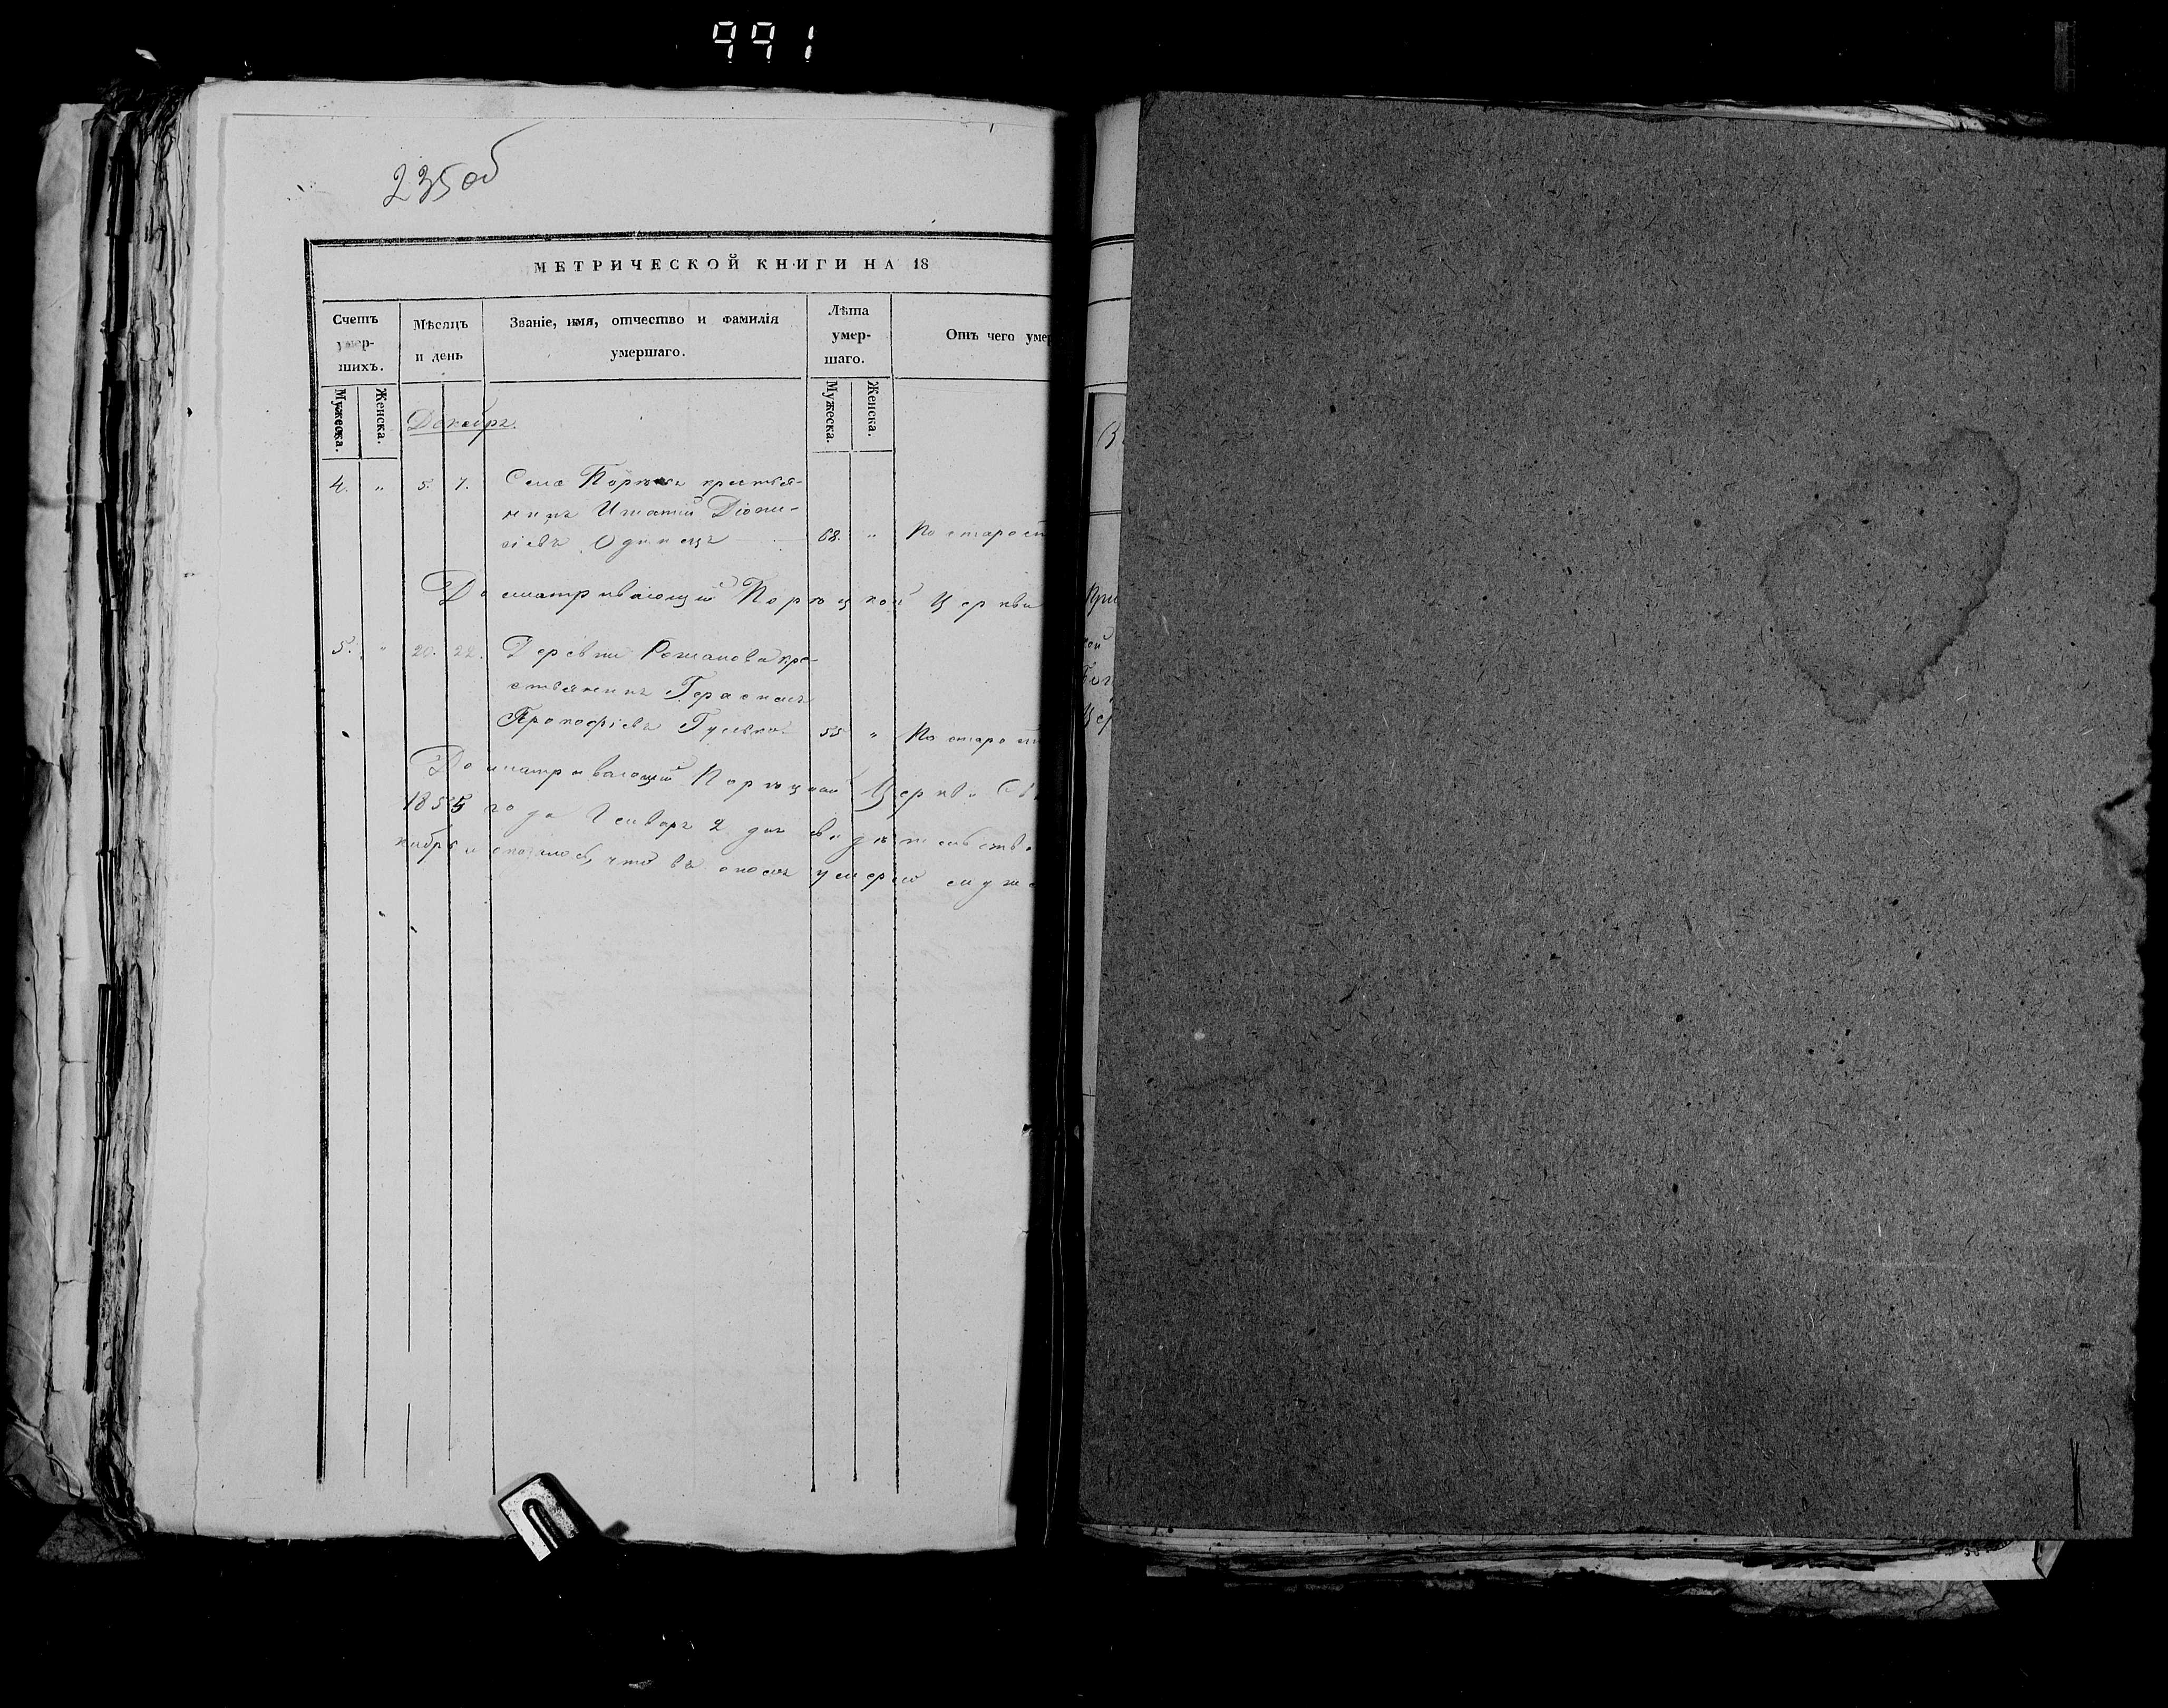 991
235об
МЕТРИЧЕСКОЙ КНИГИ НА 18
Счетъ умер- шихъ.
Мѣсяцъ и день
Званіе, имя, отчество и фамилія умершаго.
Лѣта умер- шаго.
Отъ чего умер
Мужеска. Женска.
Мужеска. Женска.
Декабрь.
4. „ 5. 7. Села крестья-
нинъ Игнатій Діони-
сіевъ Одинецъ 68. „ По старост
Досматривающій Порѣцкой Церкви
5. „ 20. 22. Деревни Романовки кре-
стьянинъ Герасимъ
Прокофіевъ Гулько 55 „ По старост
Досматривающій Порѣцкой Церкви Св
1855 года Генваря 2 дня свидѣтельство
оказалось, что въ ономъ умерш муже
При